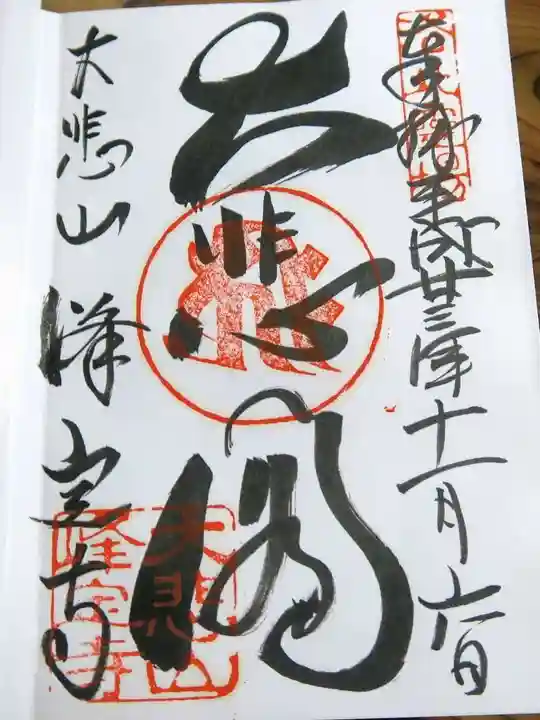 奉拝 平成廿三年十一月六日
大悲閣
大悲山 峰定寺
大悲山
峰定寺